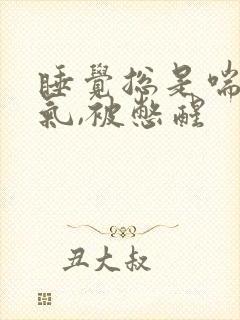 睡覺總是喘
氣,被憋醒
丑大叔